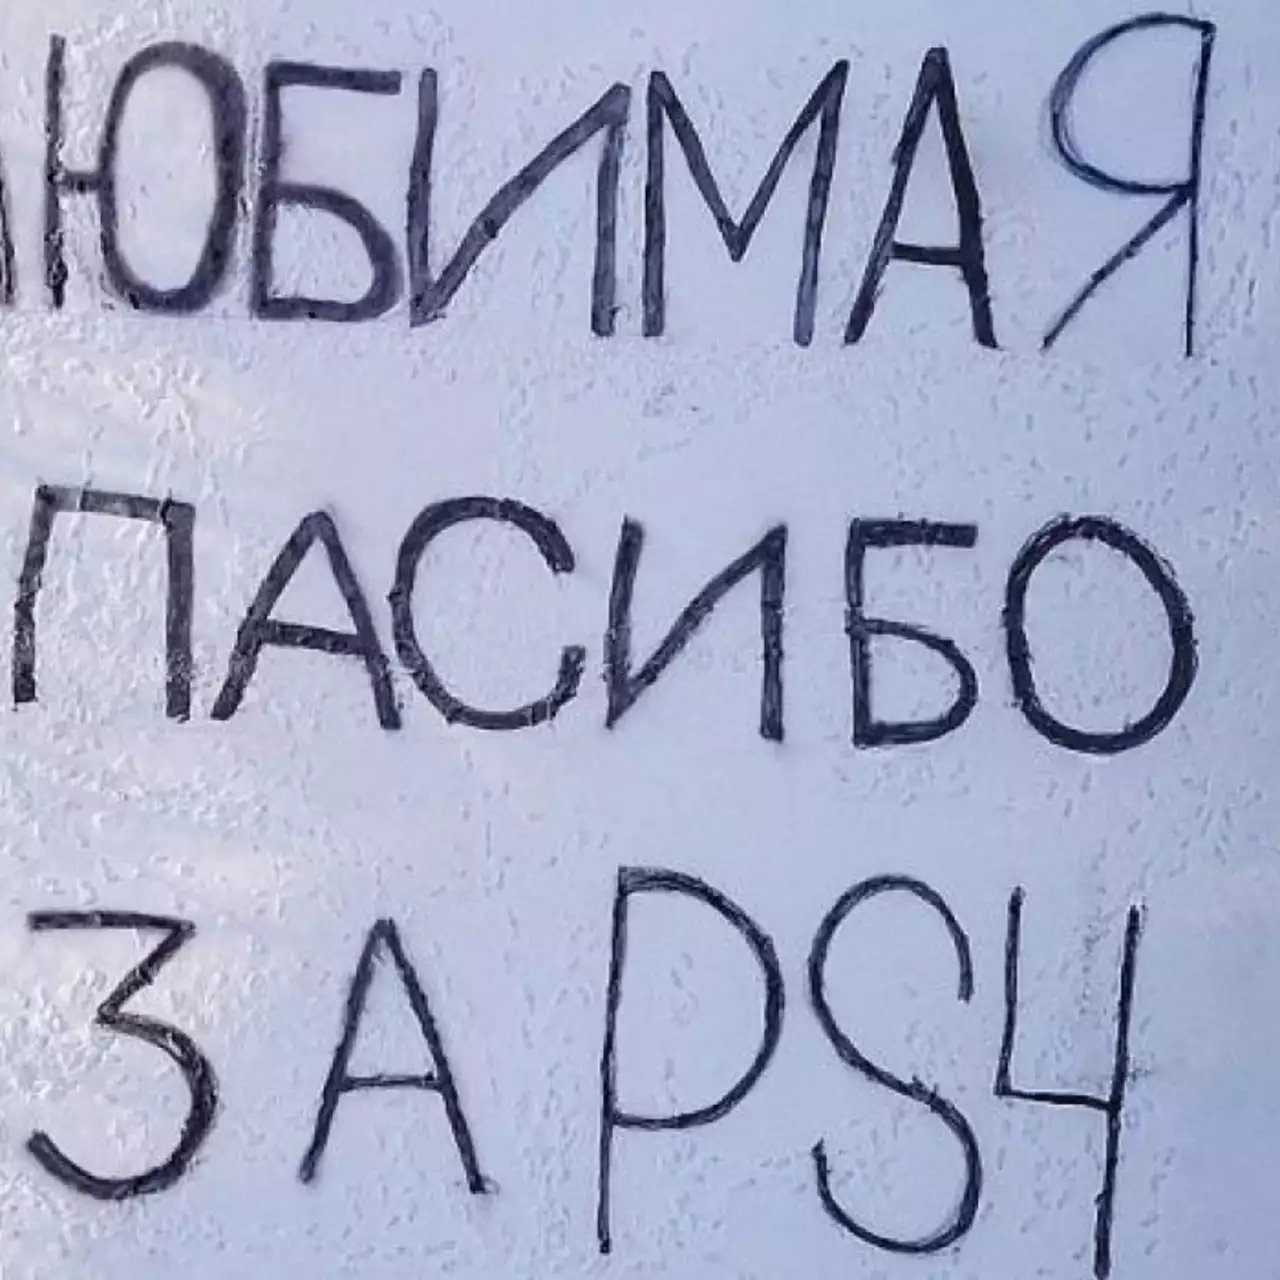 ЛЮБИМАЯ
ПАСИБО
ЗА PS4